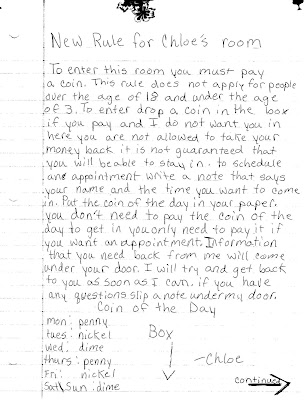 New Rule for Chloe's room
To enter this room you must pay
a coin. This rule does not apply for people
over the age of 18 and under the age
of 3. To enter drop a coin in the box
if you pay and I do not want you in
here you are not allowed to take your
money back it is not guaranteed that
you will be able to stay in. to schedule
an appointment write a note that says
your name and the time you want to come
in. Put the coin of the day in your paper.
you don't need to pay the coin of the
day to get in you only need to pay it if
you want an appointment. Information
that you need back from me will come
under your door. I will try and get back
to you as soon as I can, if you have
any questions slip a note under my door.
Coin of the Day
mon: penny
tues: nickel
wed: dime
thurs: penny
Fri: nickel
Sat\Sun: dime
Box
-Chloe
continued